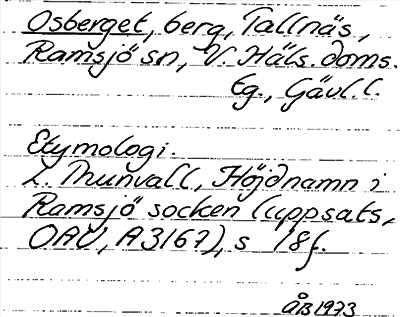 Osberget, berg, Tallnäs,
Ramsjö sn, V. Häls. doms.
Eg., Gävl. l.
Etymologi.
L. Thunvall, Höjdnamn i
Ramsjö socken (uppsats,
OAU, A 3167), s 18f.
ÅB 1973